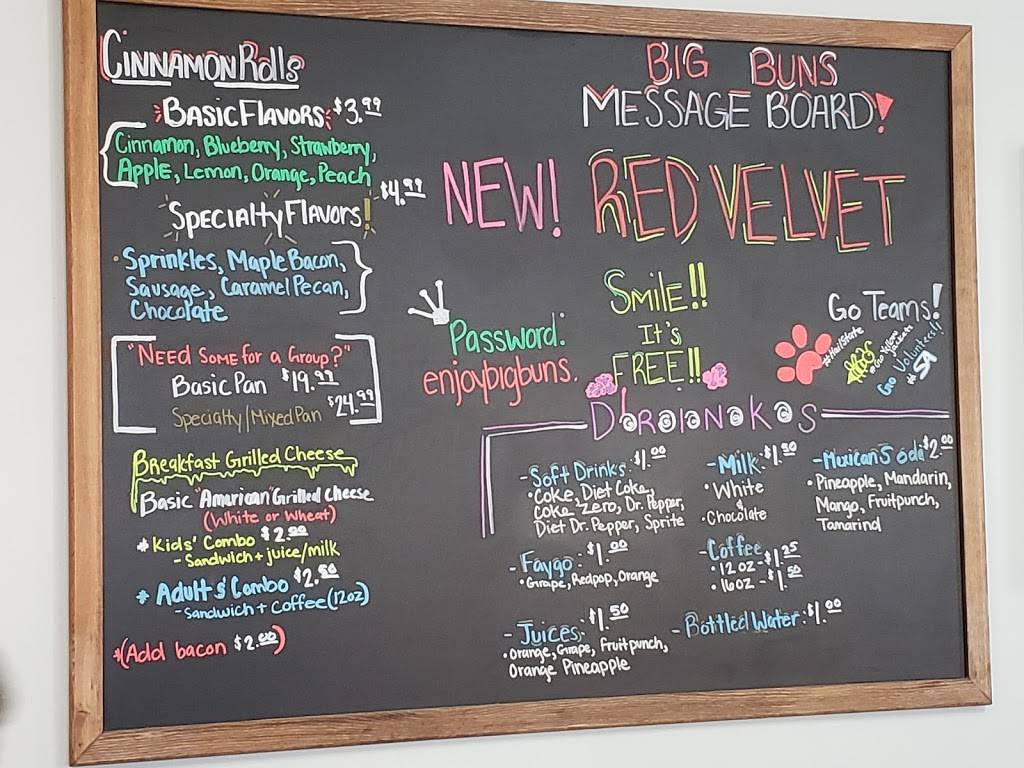 Cinnamon Rolls
Basic Flavors $3.99
Cinnamon, Blueberry, Strawberry,
Apple, Lemon, Orange, Peach
$4.99
Specialty Flavors!
Sprinkles, Maple Bacon,
Sausage, Caramel Pecan,
Chocolate
"Need Some for a Group?"
Basic Pan $19.99
Specialty/Mixed Pan $24.99
Breakfast Grilled Cheese
Basic "American" Grilled Cheese
(White or Wheat)
* Kids' Combo $2.00
- Sandwich + juice/milk
* Adults' Combo $2.50
- Sandwich + Coffee (12oz)
*(Add bacon $2.00)
Big Buns
Message Board!
New! Red Velvet
Smile!!
It's
Free!!
Password:
enjoybigbuns.
Go Teams!
#HailState
#Go Yellow Jackets
Go Volunteers!!
#SA
- Soft Drinks: $1.00
• Coke, Diet Coke,
Coke Zero, Dr. Pepper,
Diet Dr. Pepper, Sprite
- Faygo: $1.00
• Grape, Redpop, Orange
- Juices: $1.50
• Orange, Grape, Fruitpunch,
Orange Pineapple
- Milk: $1.50
• White
&
• Chocolate
- Coffee
• 12oz - $1.25
• 16oz - $1.50
- Bottled Water: $1.00
- Mexican Soda $2.00
• Pineapple, Mandarin,
Mango, Fruitpunch,
Tamarind